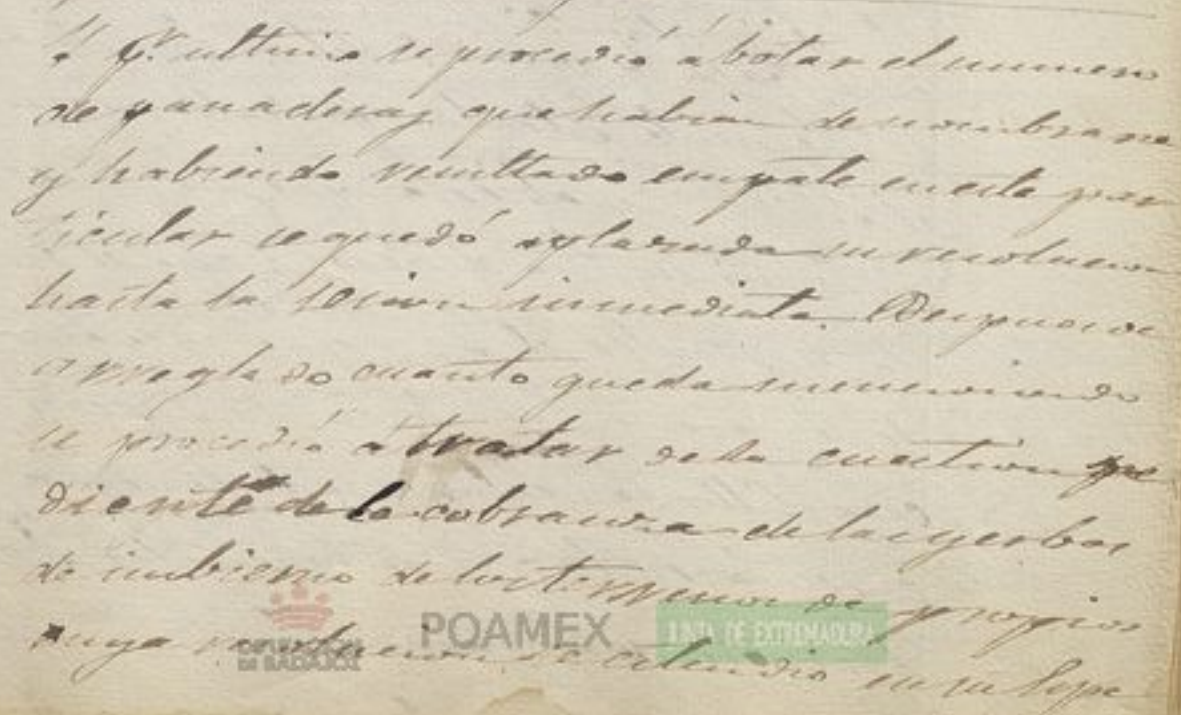 Y Pr. ultimo se procedió á botar el numero
de panaderas que habian de nombrarse
y habiendo resultado empate en este par
ticular se quedó aplazada su resolucion
hasta la sesion immediata. Despues de
arreglado cuanto queda mencionado
se procedió a tratar de la cuestion pe
diente de la cobranza de las yerbas
de imbierno de los terrenos de propios
cuya resolucion se en su
DIPUTACIÓN DE BADAJOZ
POAMEX
JUNTA DE EXTREMADURA